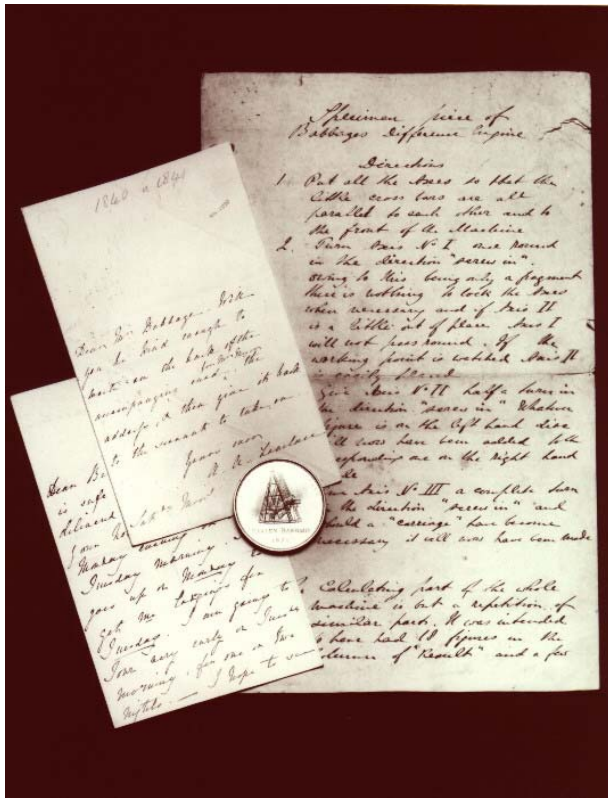 Specimen piece of
Babbages Difference Engine
Directions
1. Put all the Axes so that the
little cross bars are all
parallel to each other and to
the front of the Machine
2. Turn Axis No I once round
in the direction "screw in".
owing to this being only a fragment
there is nothing to lock the Axes
when necessary and if Axis II
is a little out of place Axis I
will not pass round. If the
working point is watched Axis II
is easily
Axis No II half a turn in
direction "screw in" Whatever
figure is on the left hand disc
will now have been added to the
on the right hand
Axis No III a complete turn
the direction "screw in" and
should a "carriage" have become
necessary it will now have been made
Calculating part of the whole
machine is but a repetition of
similar parts. It was intended
to have had 18 figures in the
column of "Result" and a few
1840 or 1841
Dear Mr Babbage. Will
you be kind enough to
write on the back of the
accompanying card the
address, & then give it back
to the servant to take on
Yours ever
A. A. Lovelace
Dear
is safe
delivered
Monday evening or
Tuesday morning.
goes up on Monday to
get me lodgings for
Tuesday. I am going to
Town very early on Tuesday
morning, for one or two
nights. — I hope to see
1871